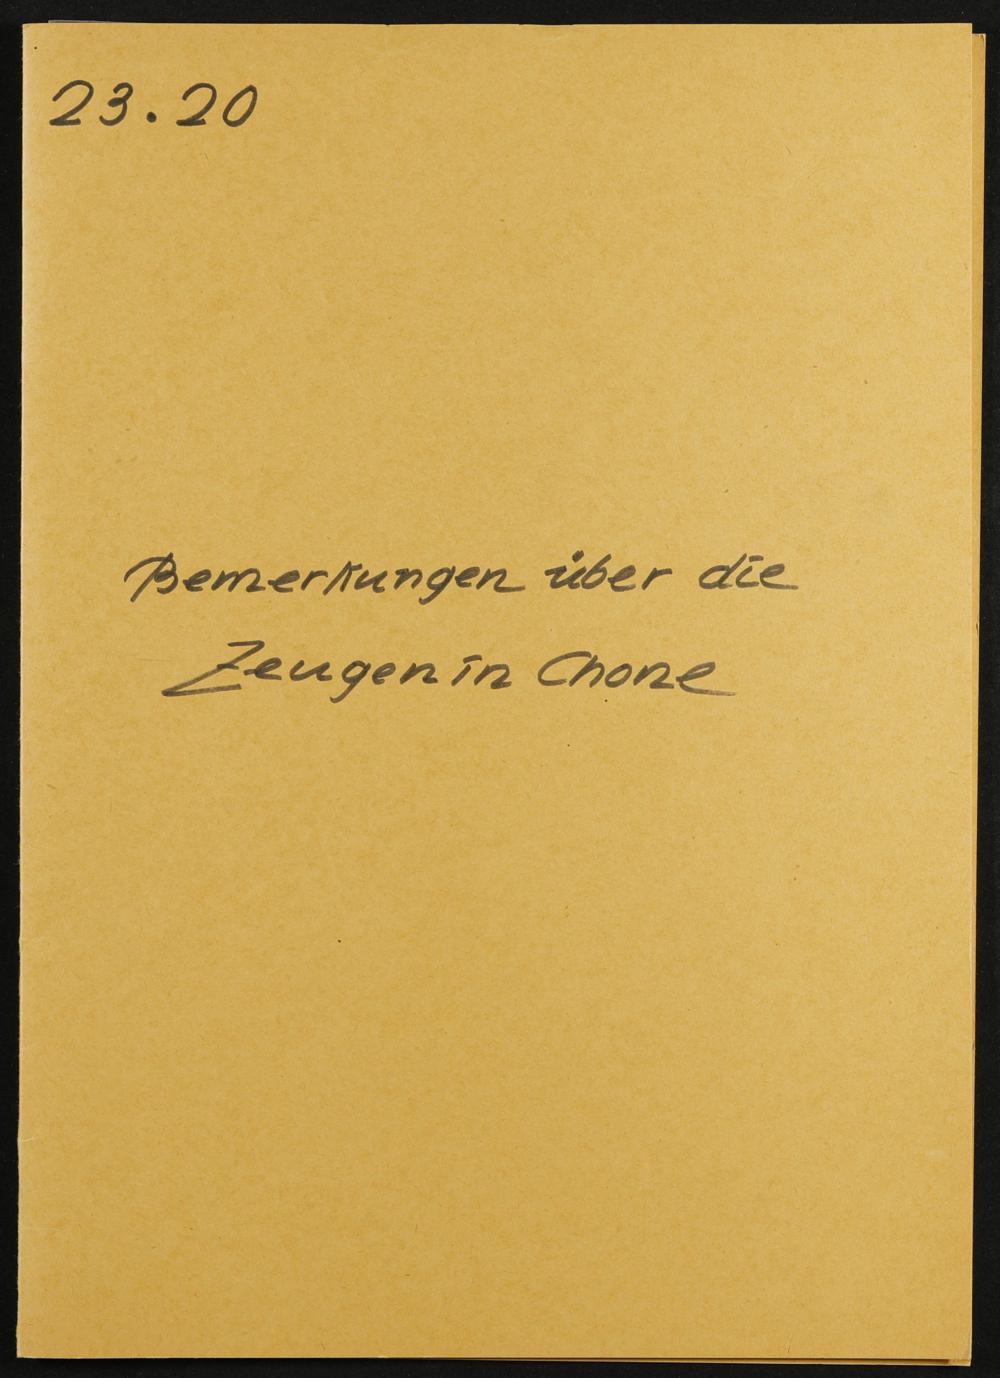 23.20
Bemerkungen über die
Zeugen in Chone